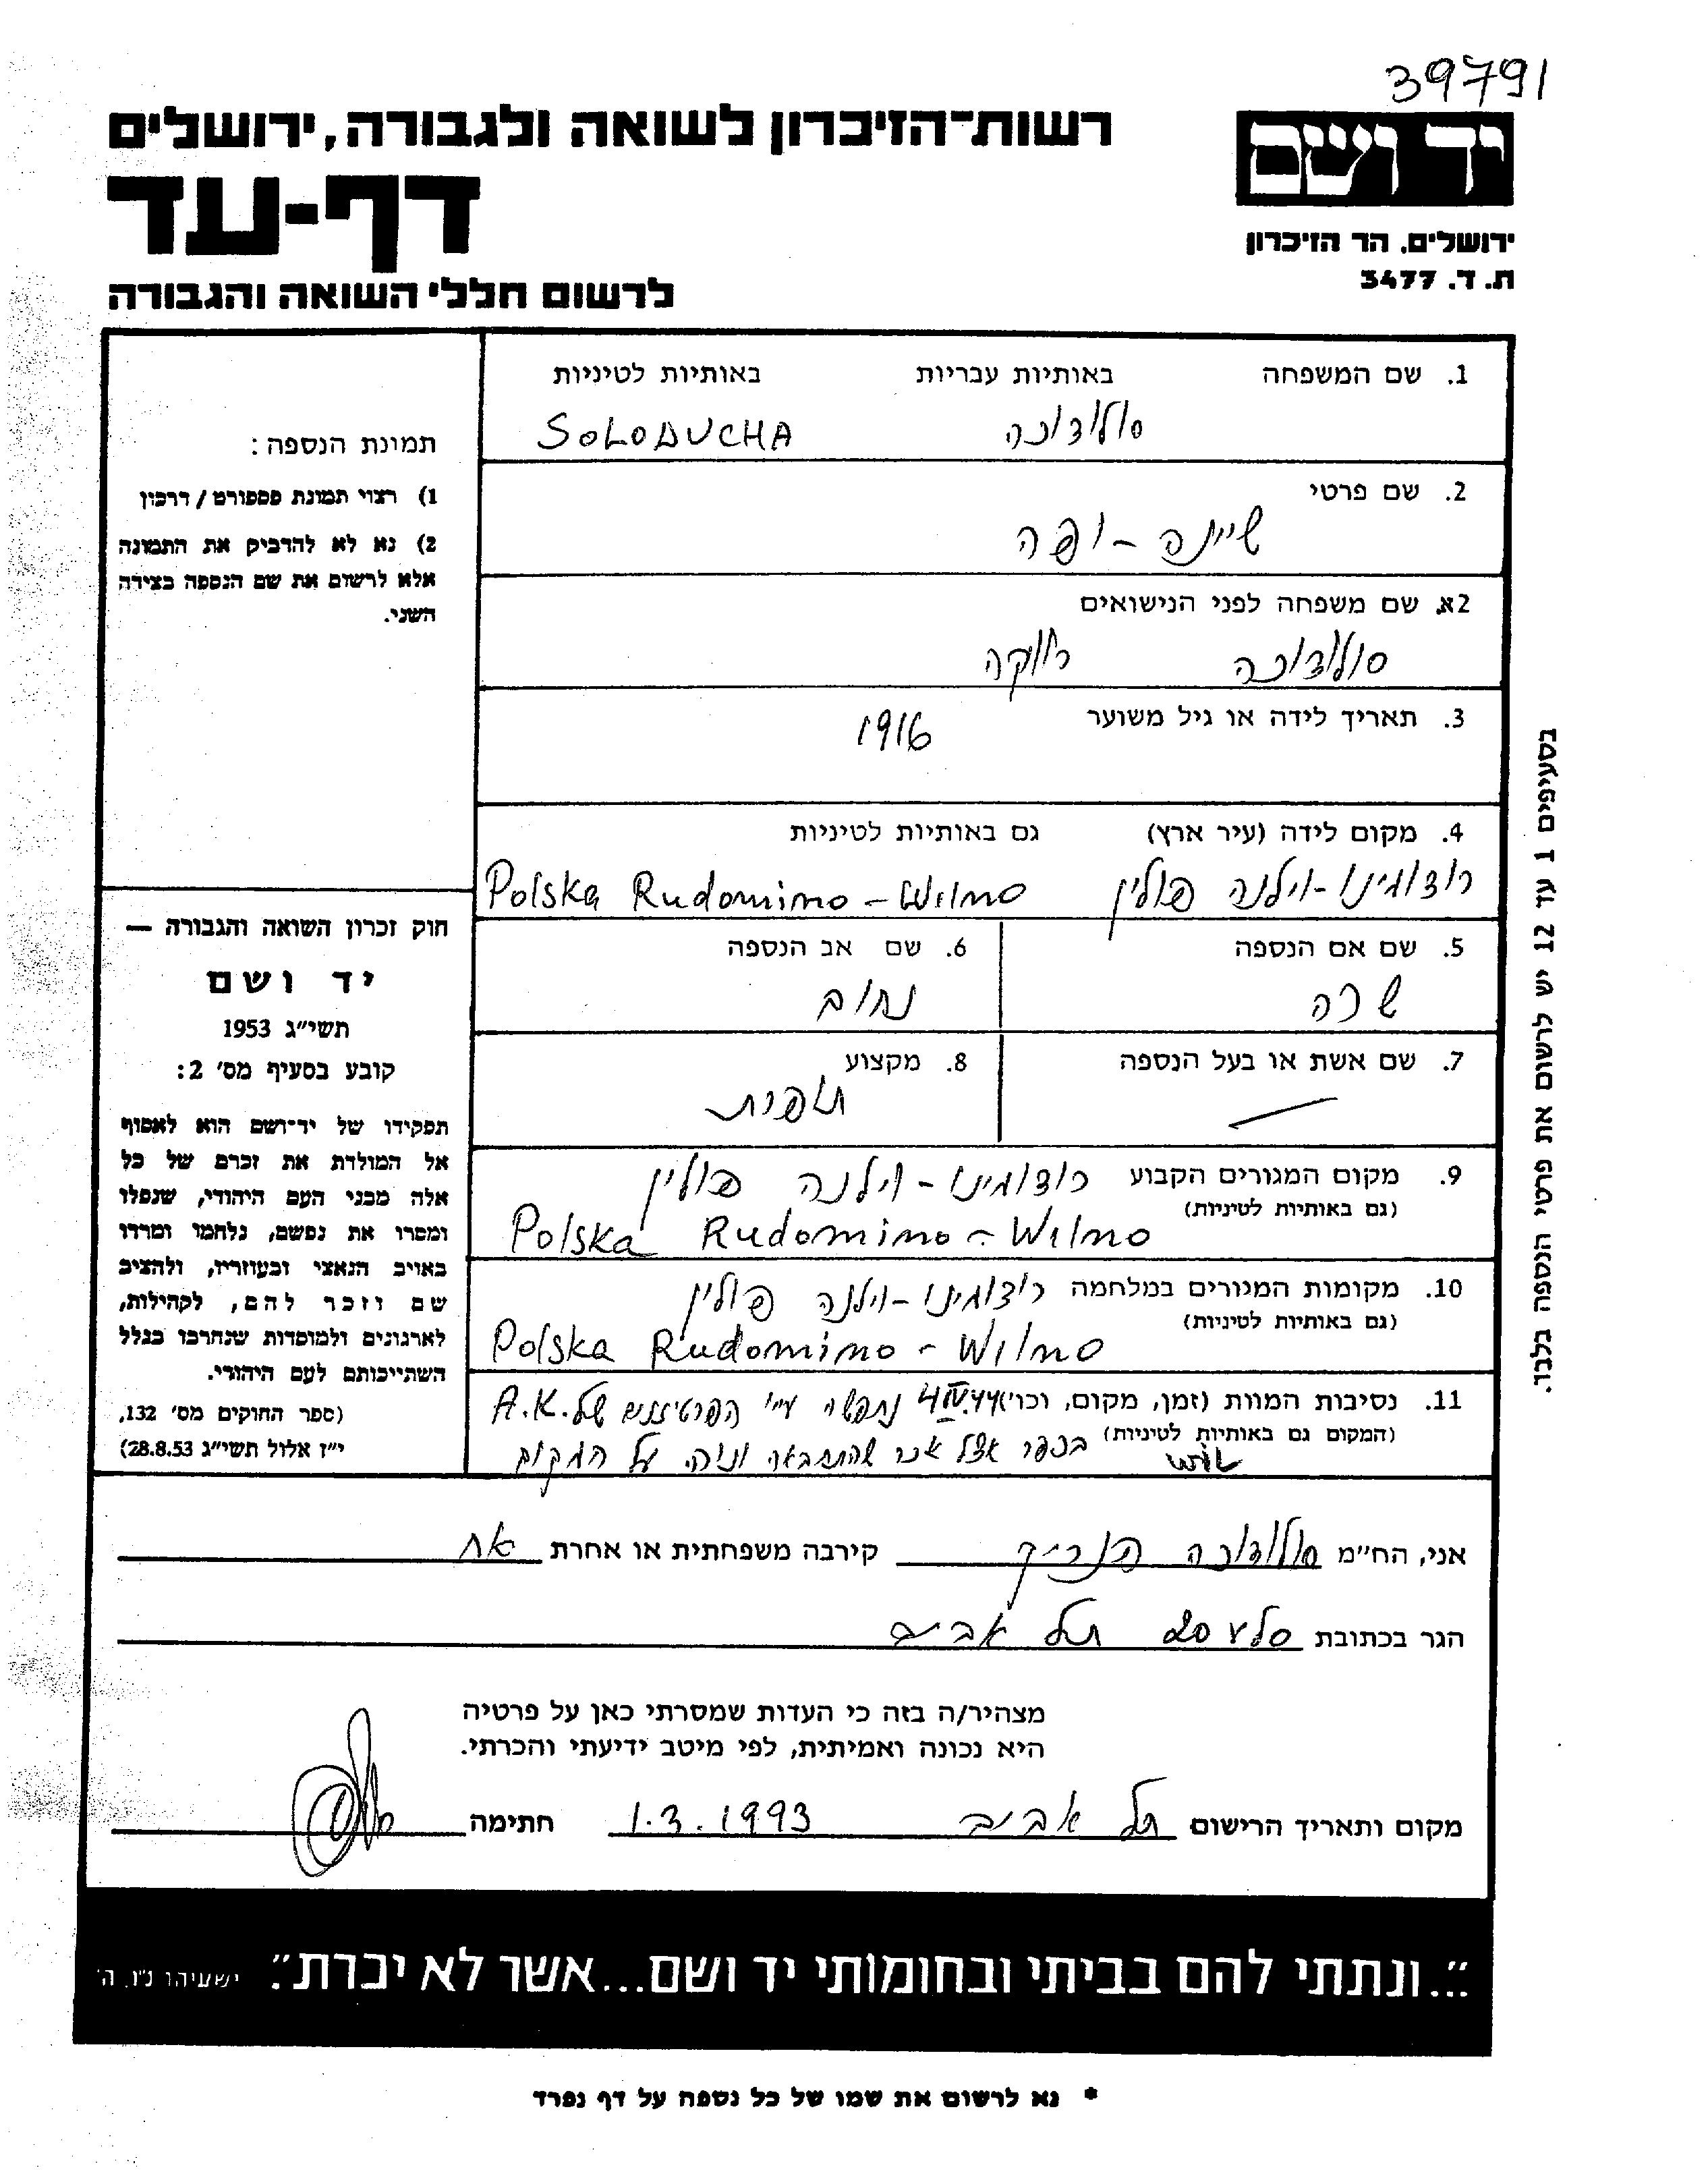 39791
יד ושם
רשות־הזיכרון לשואה ולגבורה, ירושלים
דף-עד
ירושלים. הר הזיכרון
ת. ד. 3477
לרשום חללי השואה והגבורה
1. שם המשפחה באותיות עבריות באותיות לטיניות
סולודוכה SOLODUCHA
2. שם פרטי
שיינה-יפה
2א. שם משפחה לפני הנישואים
סולודוכה רווקה
3. תאריך לידה או גיל משוער
1916
4. מקום לידה (עיר ארץ) גם באותיות לטיניות
רודומינו-וילנה פולין Polska Rudomimo-Wilno
5. שם אם הנספה
שרה
6. שם אב הנספה
נחום
7. שם אשת או בעל הנספה
8. מקצוע
תופרת
9. מקום המגורים הקבוע רודומינו-וילנה פולין
(גם באותיות לטיניות)
Polska Rudomimo-Wilno
10. מקומות המגורים במלחמה רודומינו-וילנה פולין
(גם באותיות לטיניות)
Polska Rudomimo-Wilno
11. נסיבות המוות (זמן, מקום, וכו') 4.IV.44 נתפשה ע"י הפרטיזנים של A.K.
(המקום גם באותיות לטיניות) בכפר אצל אכר שהתחבאה על המקום
תמונת הנספה:
1) רצוי תמונת פספורט / דרכון
2) נא לא להדביק את התמונה
אלא לרשום את שם הנספה בצידה
השני.
חוק זכרון השואה והגבורה —
יד ושם
תשי״ג 1953
קובע בסעיף מס׳ 2:
תפקידו של יד־ושם הוא לאסוף
אל המולדת את זכרם של כל
אלה מבני העם היהודי, שנפלו
ומסרו את נפשם, נלחמו ומרדו
באויב הנאצי ובעוזריו, ולהציב
שם וזכר להם, לקהילות,
לארגונים ולמוסדות שנחרבו בגלל
השתייכותם לעם היהודי.
(ספר החוקים מס׳ 132,
י״ז אלול תשי״ג 28.8.53)
בסעיפים 1 עד 12 יש לרשום את פרטי הנספה בלבד.
אני, הח״מ סולודוכה הנריק קירבה משפחתית או אחרת אח
הגר בכתובת סלע 20 תל אביב
מצהיר/ה בזה כי העדות שמסרתי כאן על פרטיה
היא נכונה ואמיתית, לפי מיטב ידיעתי והכרתי.
מקום ותאריך הרישום תל אביב 1.3.1993 חתימה
״...ונתתי להם בביתי ובחומותי יד ושם...אשר לא יכרת״. ישעיהו נ״ו, ה׳
* נא לרשום את שמו של כל נספה על דף נפרד